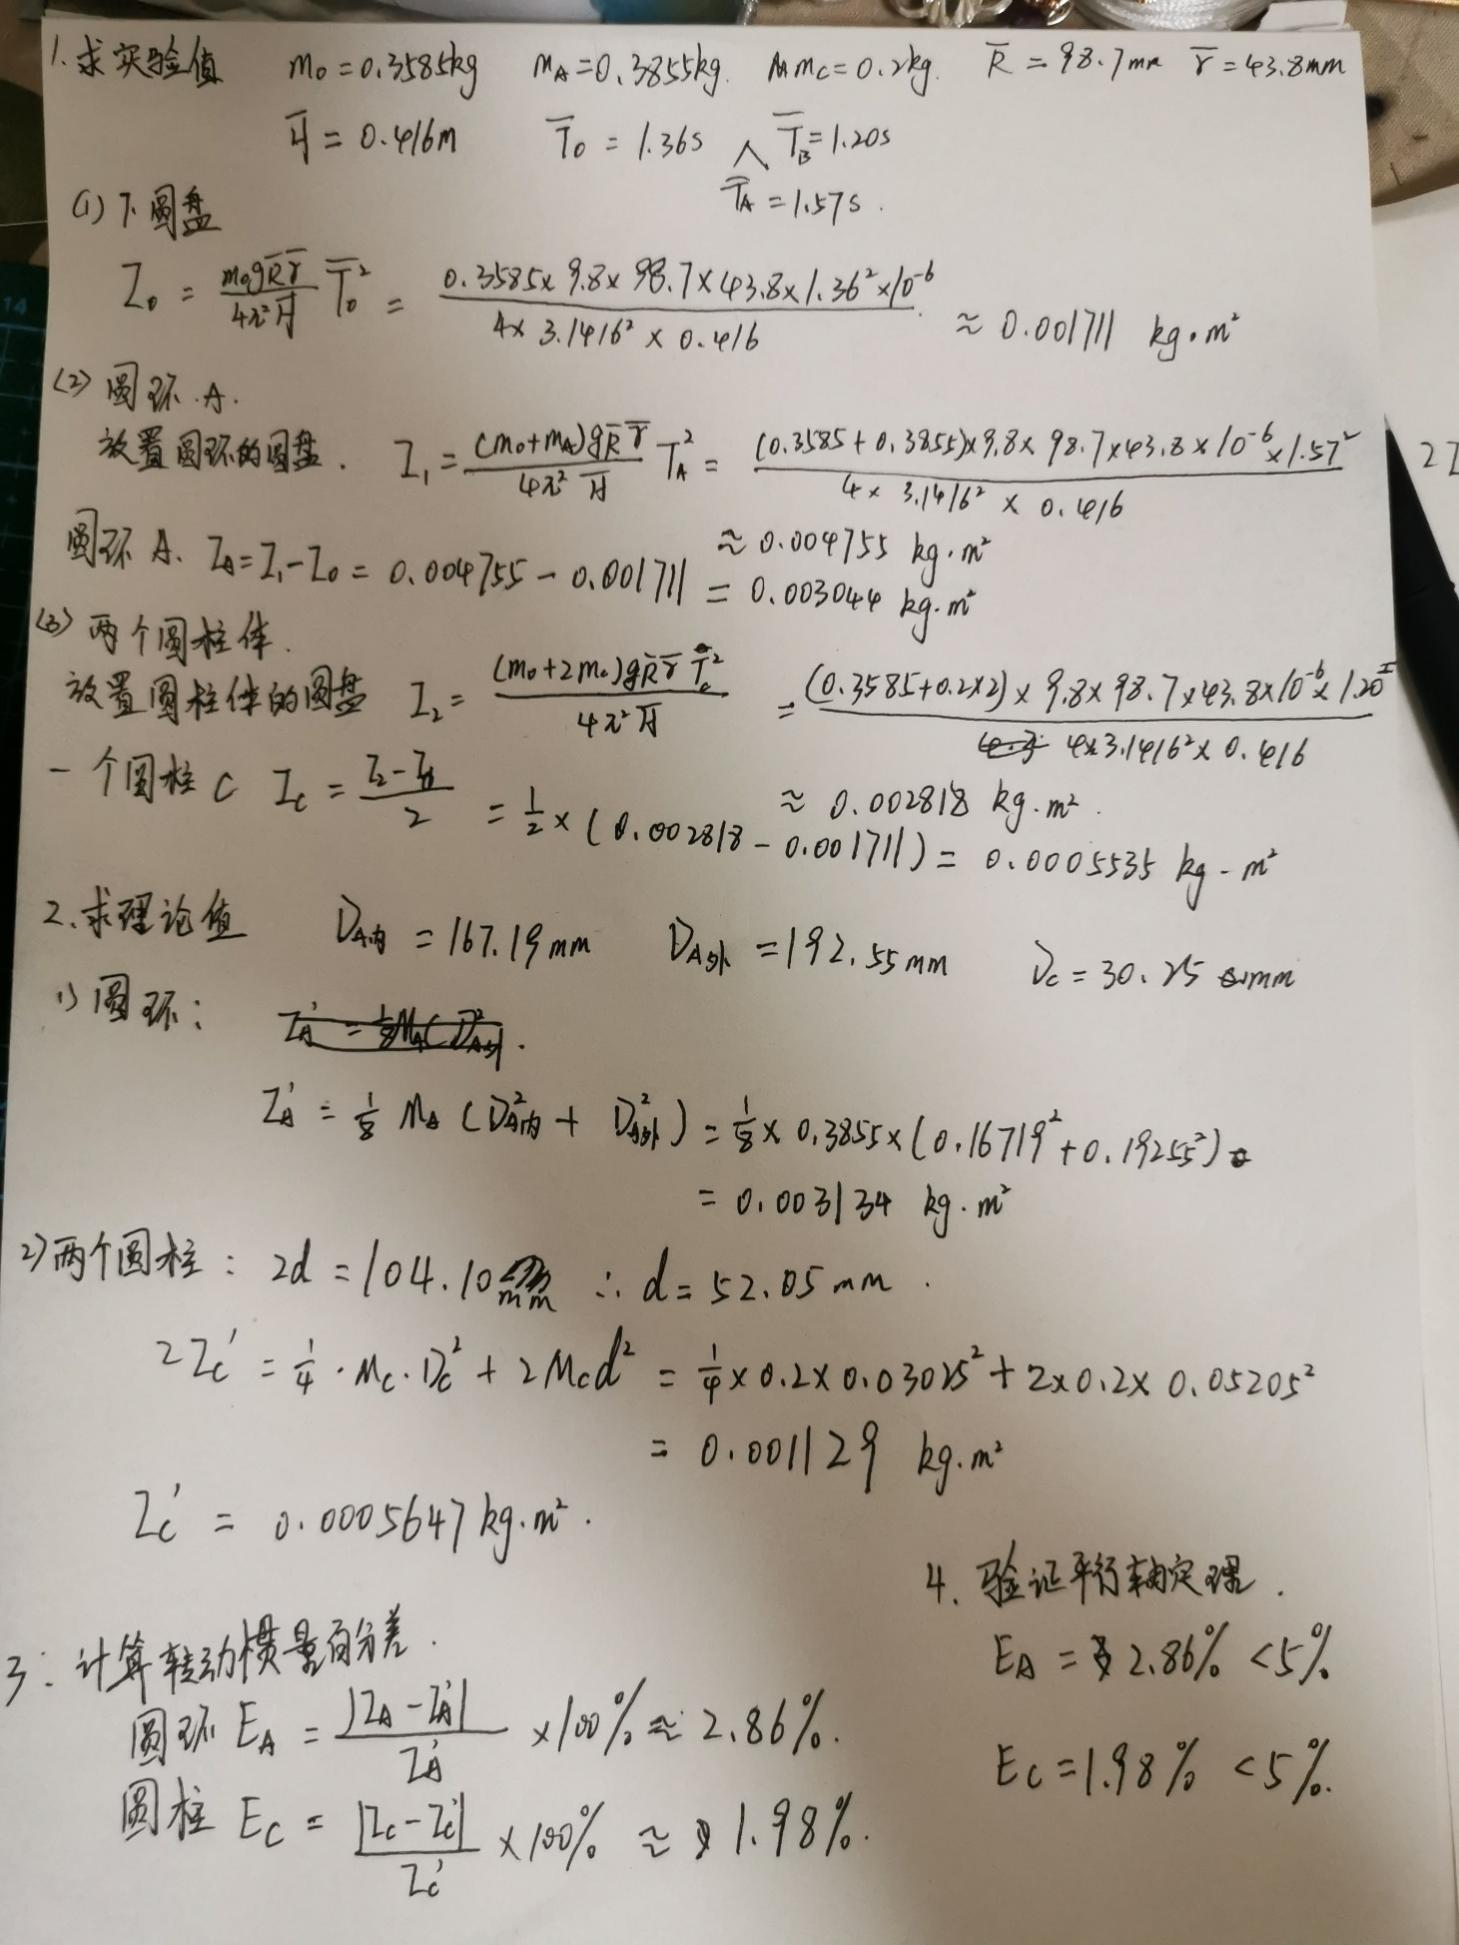 1. 求实验值 m₀=0.3585kg m_A=0.3855kg. m_C=0.2kg. R̄=98.7mm r̄=43.8mm
H̄=0.416m T̄₀=1.36s T̄_B=1.20s
T̄_A=1.57s.
(1) 下圆盘
I₀ = (m₀gR̄r̄)/(4π²H̄) T̄₀² = (0.3585×9.8×98.7×43.8×1.36²×10⁻⁶)/(4×3.1416²×0.416) ≈ 0.001711 kg·m²
(2) 圆环.A.
放置圆环的圆盘. I₁ = ((m₀+m_A)gR̄r̄)/(4π²H̄) T_A² = ((0.3585+0.3855)×9.8×98.7×43.8×10⁻⁶×1.57²)/(4×3.1416²×0.416)
≈ 0.004755 kg·m²
圆环 A. I_A=I₁-I₀ = 0.004755-0.001711 = 0.003044 kg·m²
(3) 两个圆柱体.
放置圆柱体的圆盘 I₂ = ((m₀+2m_c)gR̄r̄T̄_c²)/(4π²H̄) = ((0.3585+0.2×2)×9.8×98.7×43.8×10⁻⁶×1.20²)/(4×3.1416²×0.416)
≈ 0.002818 kg·m².
一个圆柱 C I_c = (I₂-I₀)/2 = 1/2×(0.002818-0.001711) = 0.0005535 kg-m²
2. 求理论值 D_A内=167.19mm D_A外=192.55mm D_c=30.25mm
1) 圆环:
I_A' = 1/8 M_A (D_A内² + D_A外²) = 1/8×0.3855×(0.16719²+0.19255²)
= 0.003134 kg·m²
2) 两个圆柱: 2d=104.10mm ∴ d=52.05mm.
2I_c' = 1/4·M_c·D_c²+2M_cd² = 1/4×0.2×0.03025²+2×0.2×0.05205²
= 0.001129 kg·m²
I_c' = 0.0005647kg·m².
3: 计算转动惯量百分差.
圆环 E_A = |I_A-I_A'|/I_A' ×100% ≈ 2.86%.
圆柱 E_C = |I_C-I_C'|/I_C' ×100% ≈ 1.98%.
4. 验证平行轴定理.
E_A = 2.86% <5%
E_C=1.98% <5%.